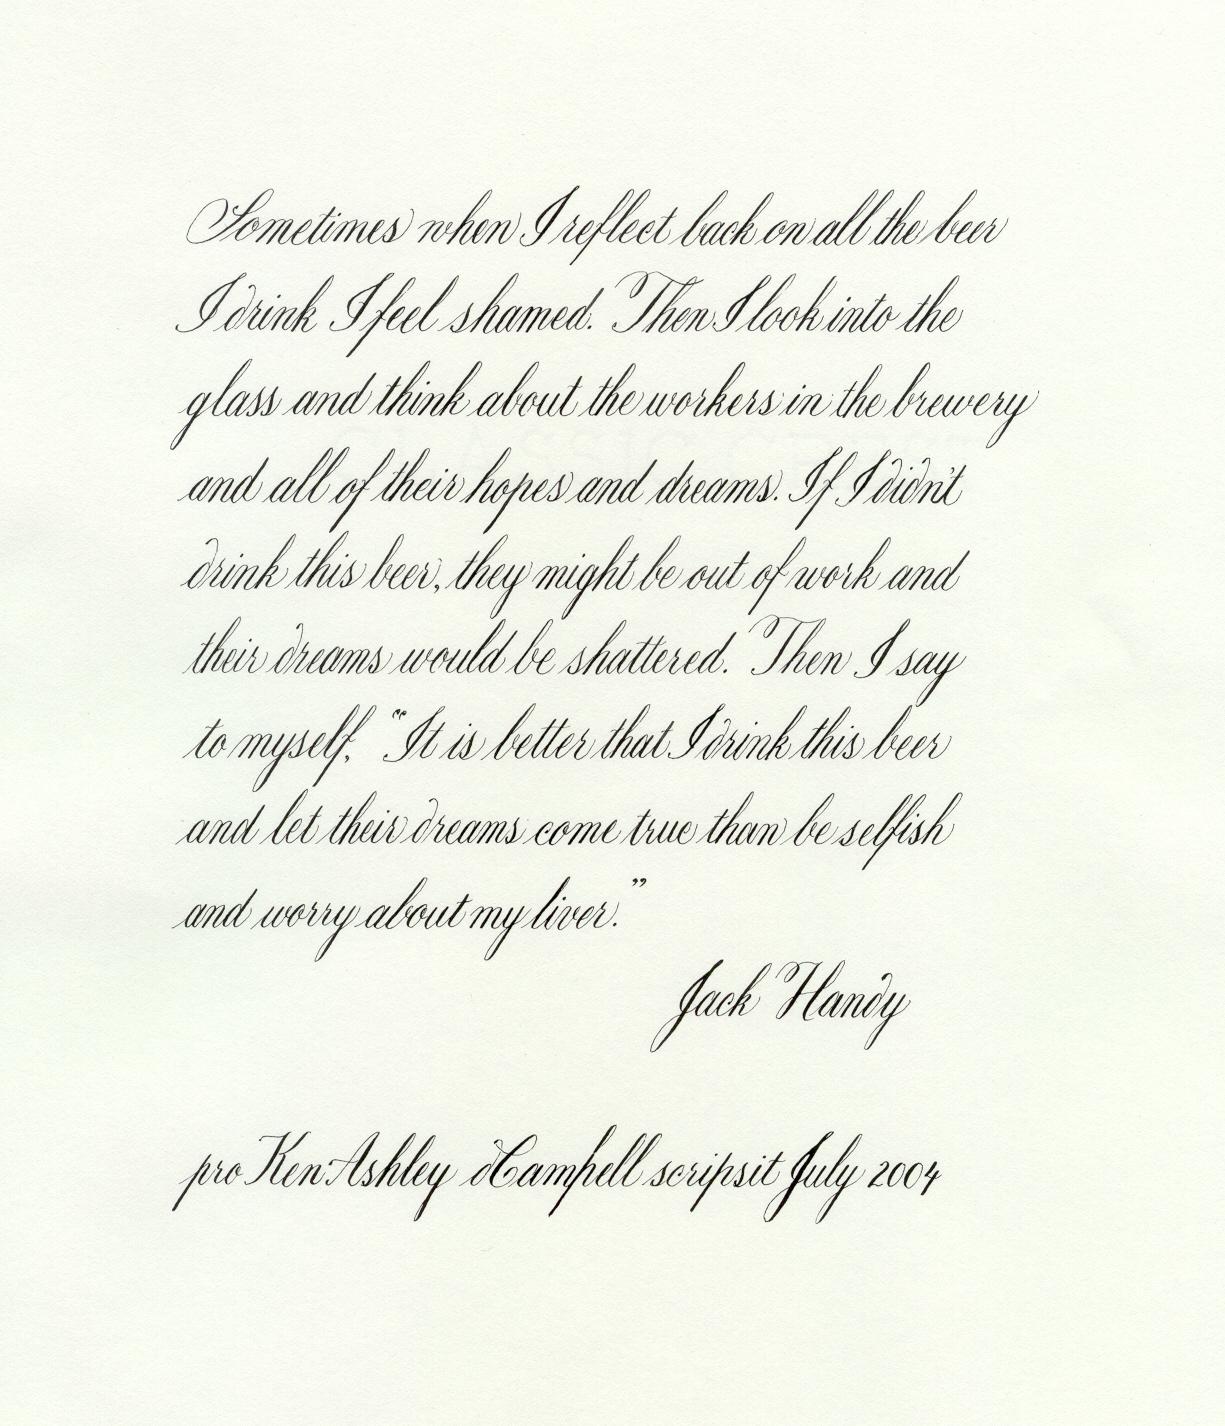 Sometimes when I reflect back on all the beer
I drink I feel shamed. Then I look into the
glass and think about the workers in the brewery
and all of their hopes and dreams. If I didn't
drink this beer, they might be out of work and
their dreams would be shattered. Then I say
to myself, “It is better that I drink this beer
and let their dreams come true than be selfish
and worry about my liver.”
Jack Handy
pro Ken Ashley scripsit July 2004